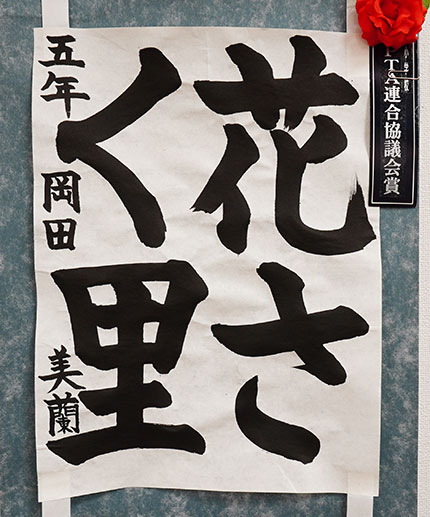 花さ
く里
五年 岡田 美蘭
PTA連合協議会賞